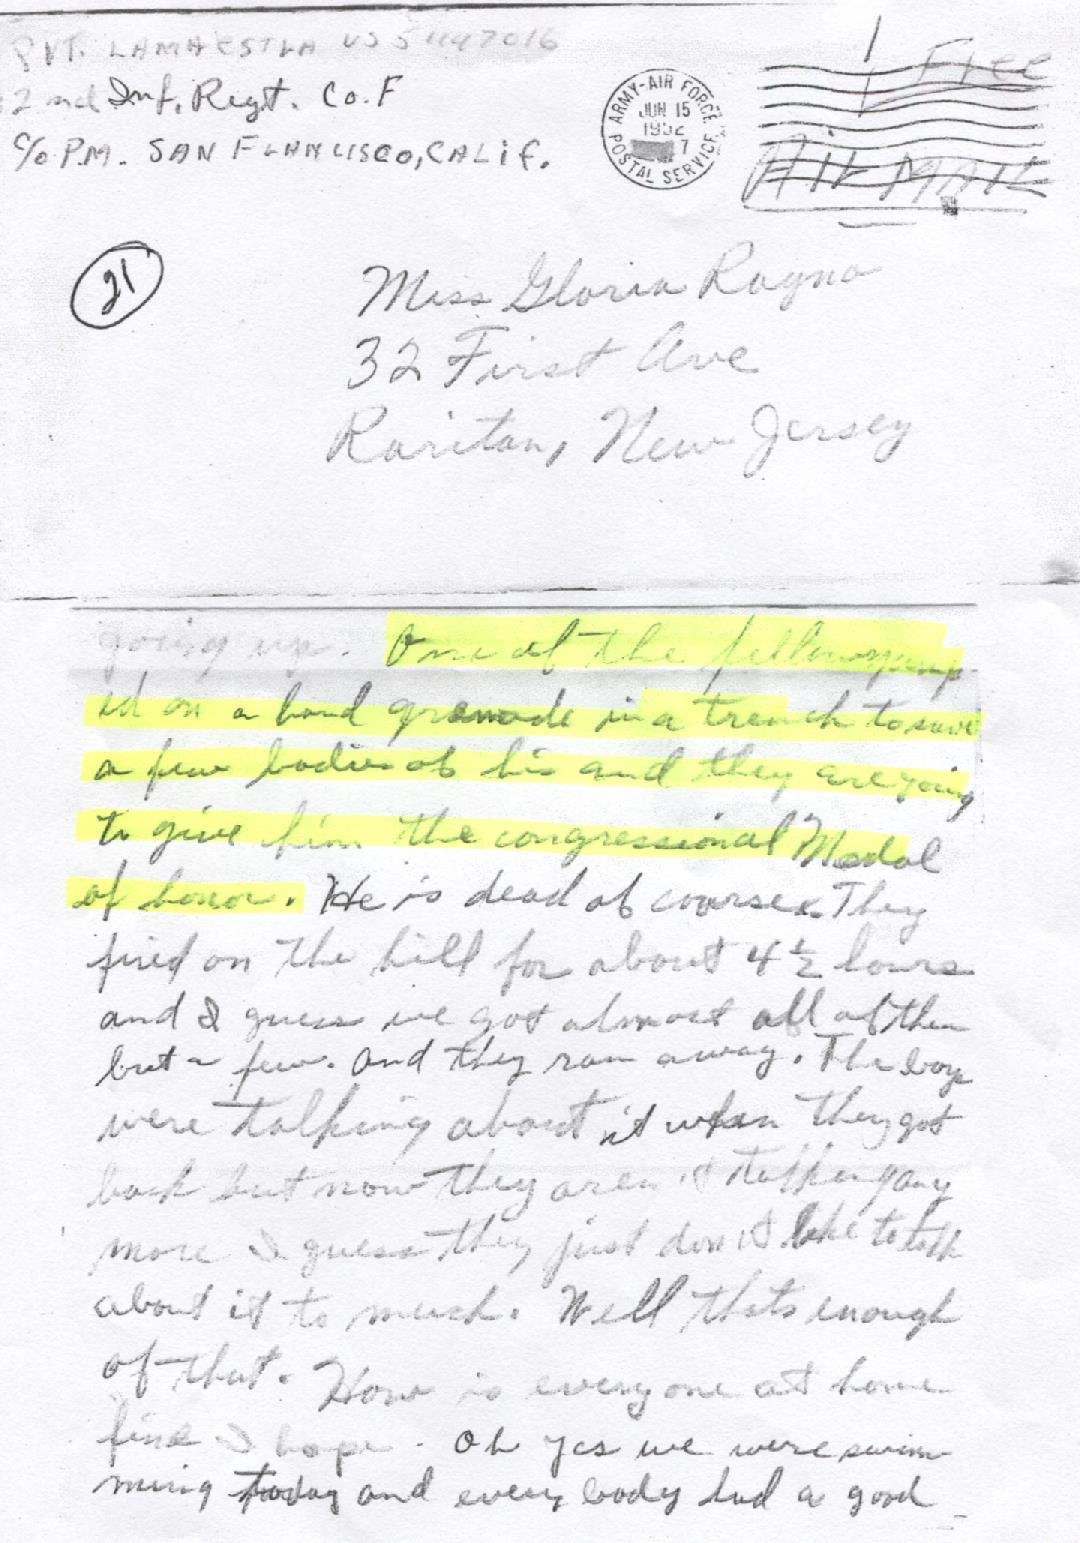 PVT. LAMAESTRA US 51147016
2nd Inf. Regt. Co. F
C/o P.M. SAN FRANCISCO, CALIF.
ARMY-AIR FORCE
POSTAL SERVICE
JUN 15
1952
7
Free
AIR MAIL
21
Miss Gloria Rayno
32 First Ave
Raritan, New Jersey
going up. One of the fellows jump
id on a hand granade in a trench to save
a few buddies of his and they are going
to give him the congressional Medal
of honor. He is dead of course. They
fired on the hill for about 4 ½ hours
and I guess we got almost all of them
but a few. and they ran away. The boys
were talking about it when they got
back but now they aren't talking any
more I guess they just don't like to talk
about it to much. Well thats enough
of that. How is everyone at home
fine I hope. Oh yes we were swim
ming today and every body had a good